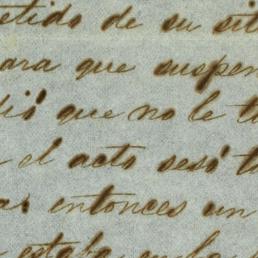 etido de su sit
para que suspen
dió que no le t
el acto sesó t
entonces un
estaba